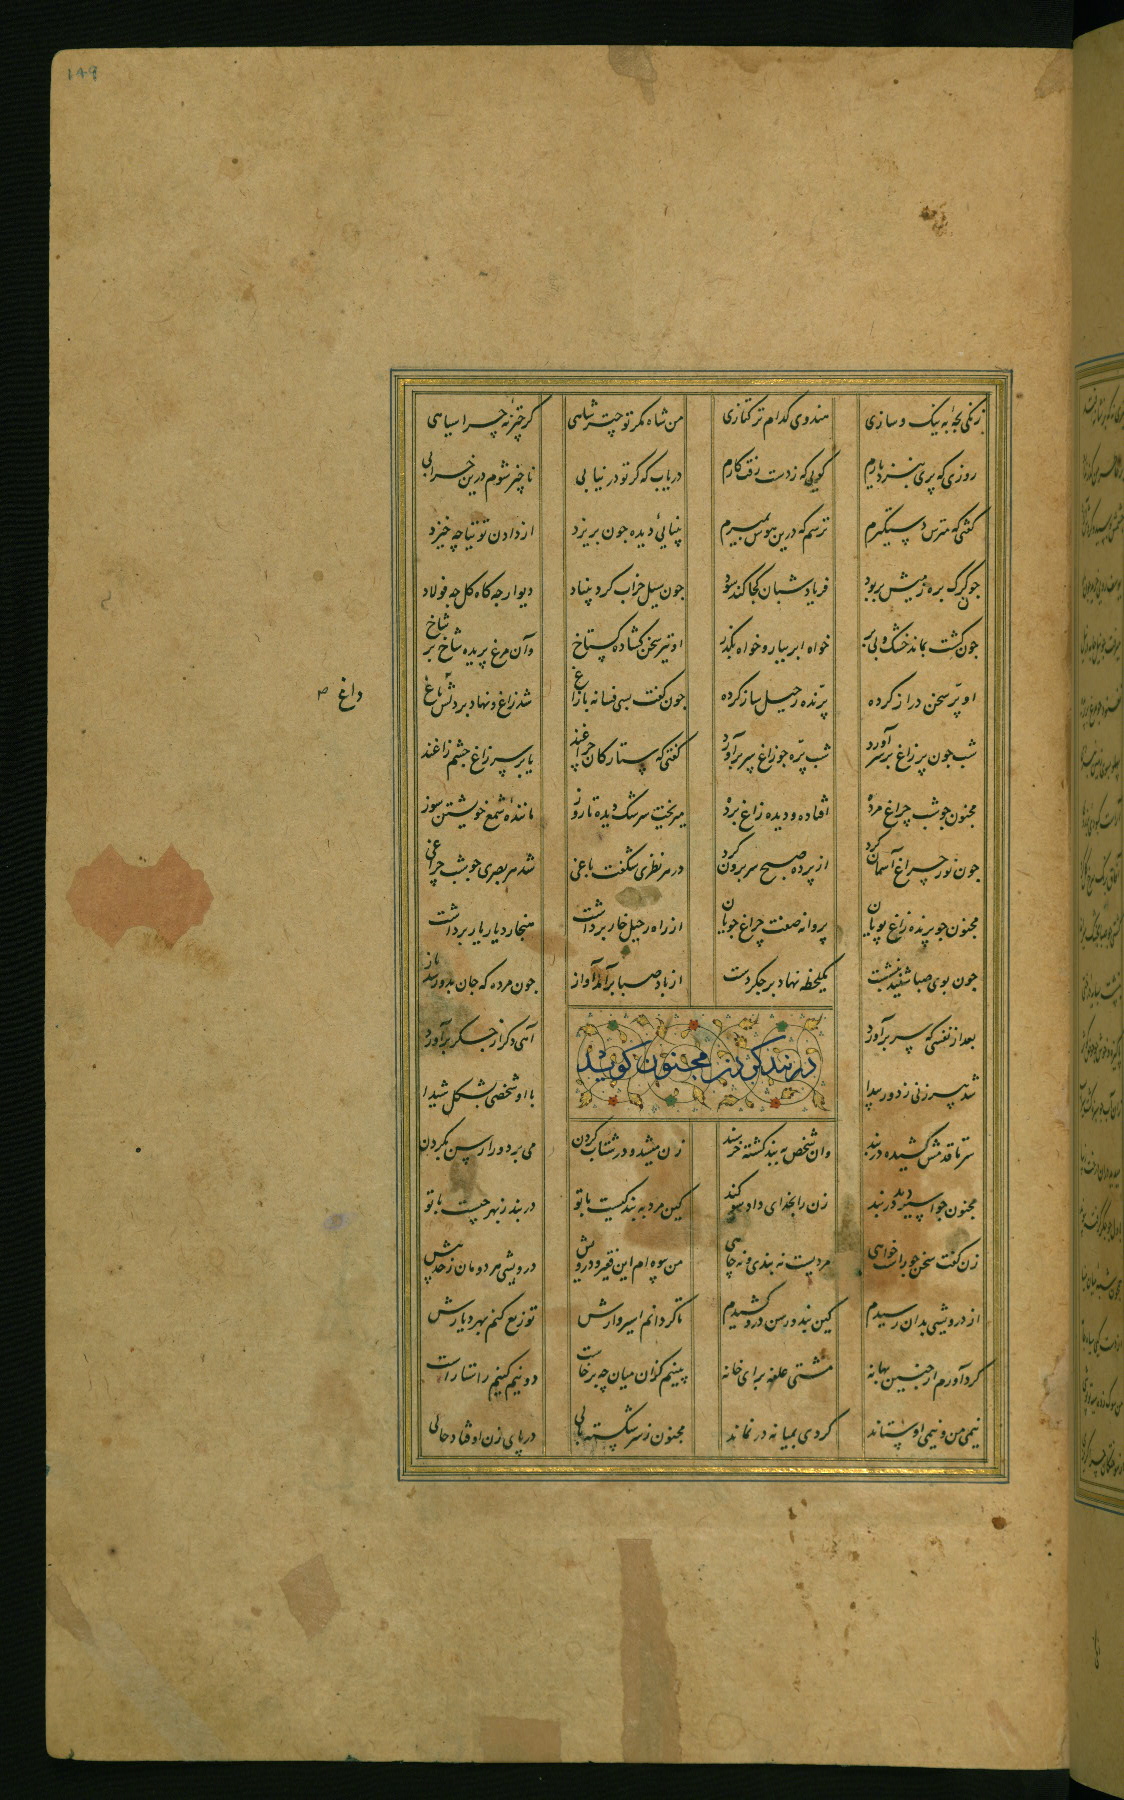 ۱۴۹
زنگی بچهٔ به نیک و سازی هندوی کدام ترکتازی من شاه مگر تو چتر شاهی گر چتر نهٔ چرا سیاهی
روزی که پری بنزد یارم گویی که ز دست رفت کارم دریاب که گر تو در نیابی ناچیز شوم درین خرابی
گفتی که مترس دستگیرم ترسم که درین هوس بمیرم بینائی دیده چون بریزد از دادن توتیا چه خیزد
چون گرگ بره ز میش بربود فریاد شبان کجا کند سود چون سیل خراب کرد بنیاد دیوار چه کاه گل چه فولاد
چون کشت بماند خشک و بی بر خواه ابر ببار و خواه بگذر او تیر سخن گشاده گستاخ وآن مرغ پریده شاخ بر شاخ
او پر سخن دراز کرده پرنده رحیل ساز کرده چون گفت بسی فسانه با زاغ شد زاغ و نهاد بر دلش باغ
داغ
شب چون پر زاغ بر سر آورد شب پره چو زاغ سر برآورد گفتی که ستارگان چراغند یا بر پر زاغ چشم زاغند
مجنون چو شب چراغ مرده افتاده و دیده زاغ برده میریخت سرشک دیده تا روز مانندهٔ شمع خویشتن سوز
چون نور چراغ آسمان گرد از پرده صبح سر برون کرد در هر نظری شکفت باغی شد هر بصری چو شب چراغی
مجنون چو پرنده زاغ پویان پروانه صفت چراغ جویان از راه رحیل خار برداشت هنجار دیار یار برداشت
چون بوی صبا شنید بنشست یکلحظه نهاد بر جگر دست از باد صبا برآمد آواز چون مرده که جان بدو رسد باز
بعد از نفسی که سر برآورد آهی دگر از جگر برآورد
در بندگی زن مجنون گوید
شد پیرزنی ز دور پیدا با او شخصی بشکل شیدا
سر تا قدمش کشیده در بند وان شخص به بند گشته خرسند زن میشد و در شتاب کردن می برد ورا رسن بگردن
مجنون چو اسیر دید در بند زن را بخدای داد سوگند کین مرد به بند کیست با تو در بند ز بهر چیست با تو
زن گفت سخن چو راست خواهی مردیست نه بندی و نه چاهی من بیوه ام این فقیر و درویش در ویشی هر دومان ز حد بیش
از درویشی بدان رسیدم کین بند و رسن درو کشیدم تا گردانم اسیر وارش توزیع کنم بهر دیارش
گرد آورم از چنین بهانه مشتی علفه برای خانه بینیم کزان میان چه برخاست دو نیم کنیم راستا راست
نیمی من و نیمی او ستاند گردی بمیانه در نماند مجنون ز سر شکسته بالی در پای زن اوفتاد حالی